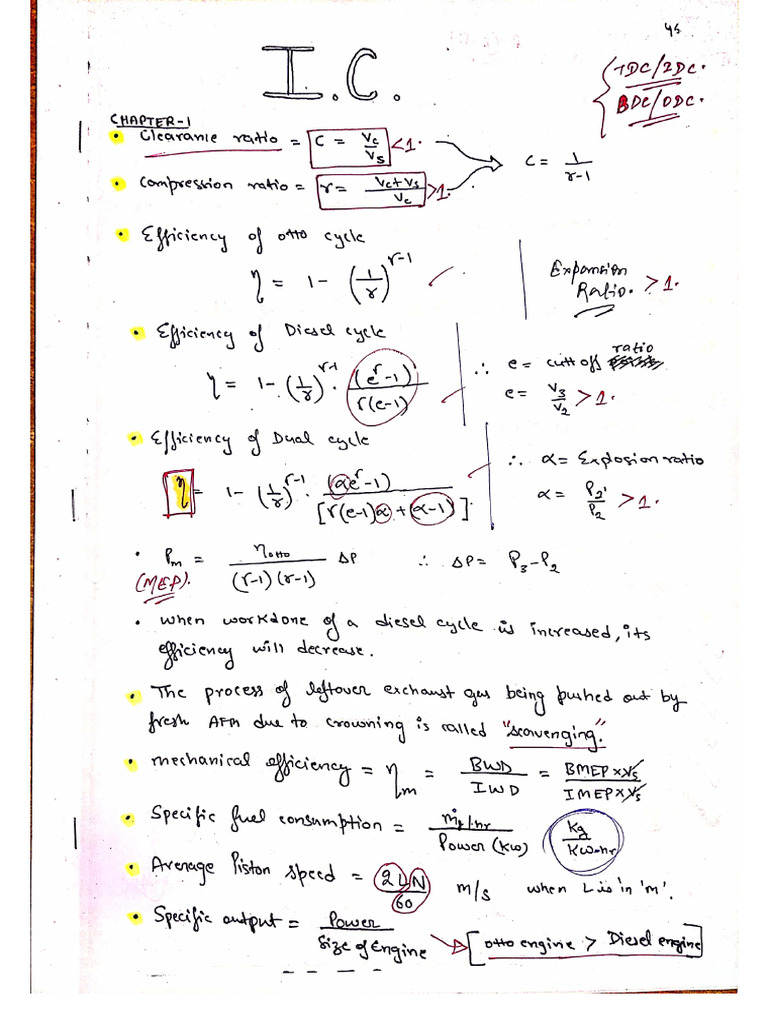 45
I.C.
TDC/IDC.
BDC/ODC.
CHAPTER-1
• Clearance ratio = C = Vc/Vs <1.
• Compression ratio = r = (Vc+Vs)/Vc >1.
C = 1/(r-1)
• Efficiency of otto cycle
η = 1 - (1/r)^(r-1)
Expansion
Ratio. >1.
• Efficiency of Diesel cycle
η = 1 - (1/r)^(r-1) · (e^r - 1)/(r(e-1))
∴ e = cutt off ratio
e = V3/V2 >1.
• Efficiency of Dual cycle
η = 1 - (1/r)^(r-1) · (αe^r - 1)/[r(e-1)α + (α-1)]
∴ α = Explosion ratio
α = P2'/P2 >1.
• Pm = ηotto/((r-1)(r-1)) ΔP ∴ ΔP = P3 - P2
(MEP).
• when workdone of a diesel cycle is increased, its
efficiency will decrease.
• The process of leftover exhaust gas being pushed out by
fresh AFM due to crowning is called "scavenging".
• mechanical efficiency = ηm = BWD/IWD = (BMEP × Vs)/(IMEP × Vs)
• Specific fuel consumption = ṁf/hr / Power (KW) Kg/KW-hr
• Average Piston speed = 2LN/60 m/s when L is in 'm'.
• Specific output = Power/Size of Engine → [otto engine > Diesel engine]